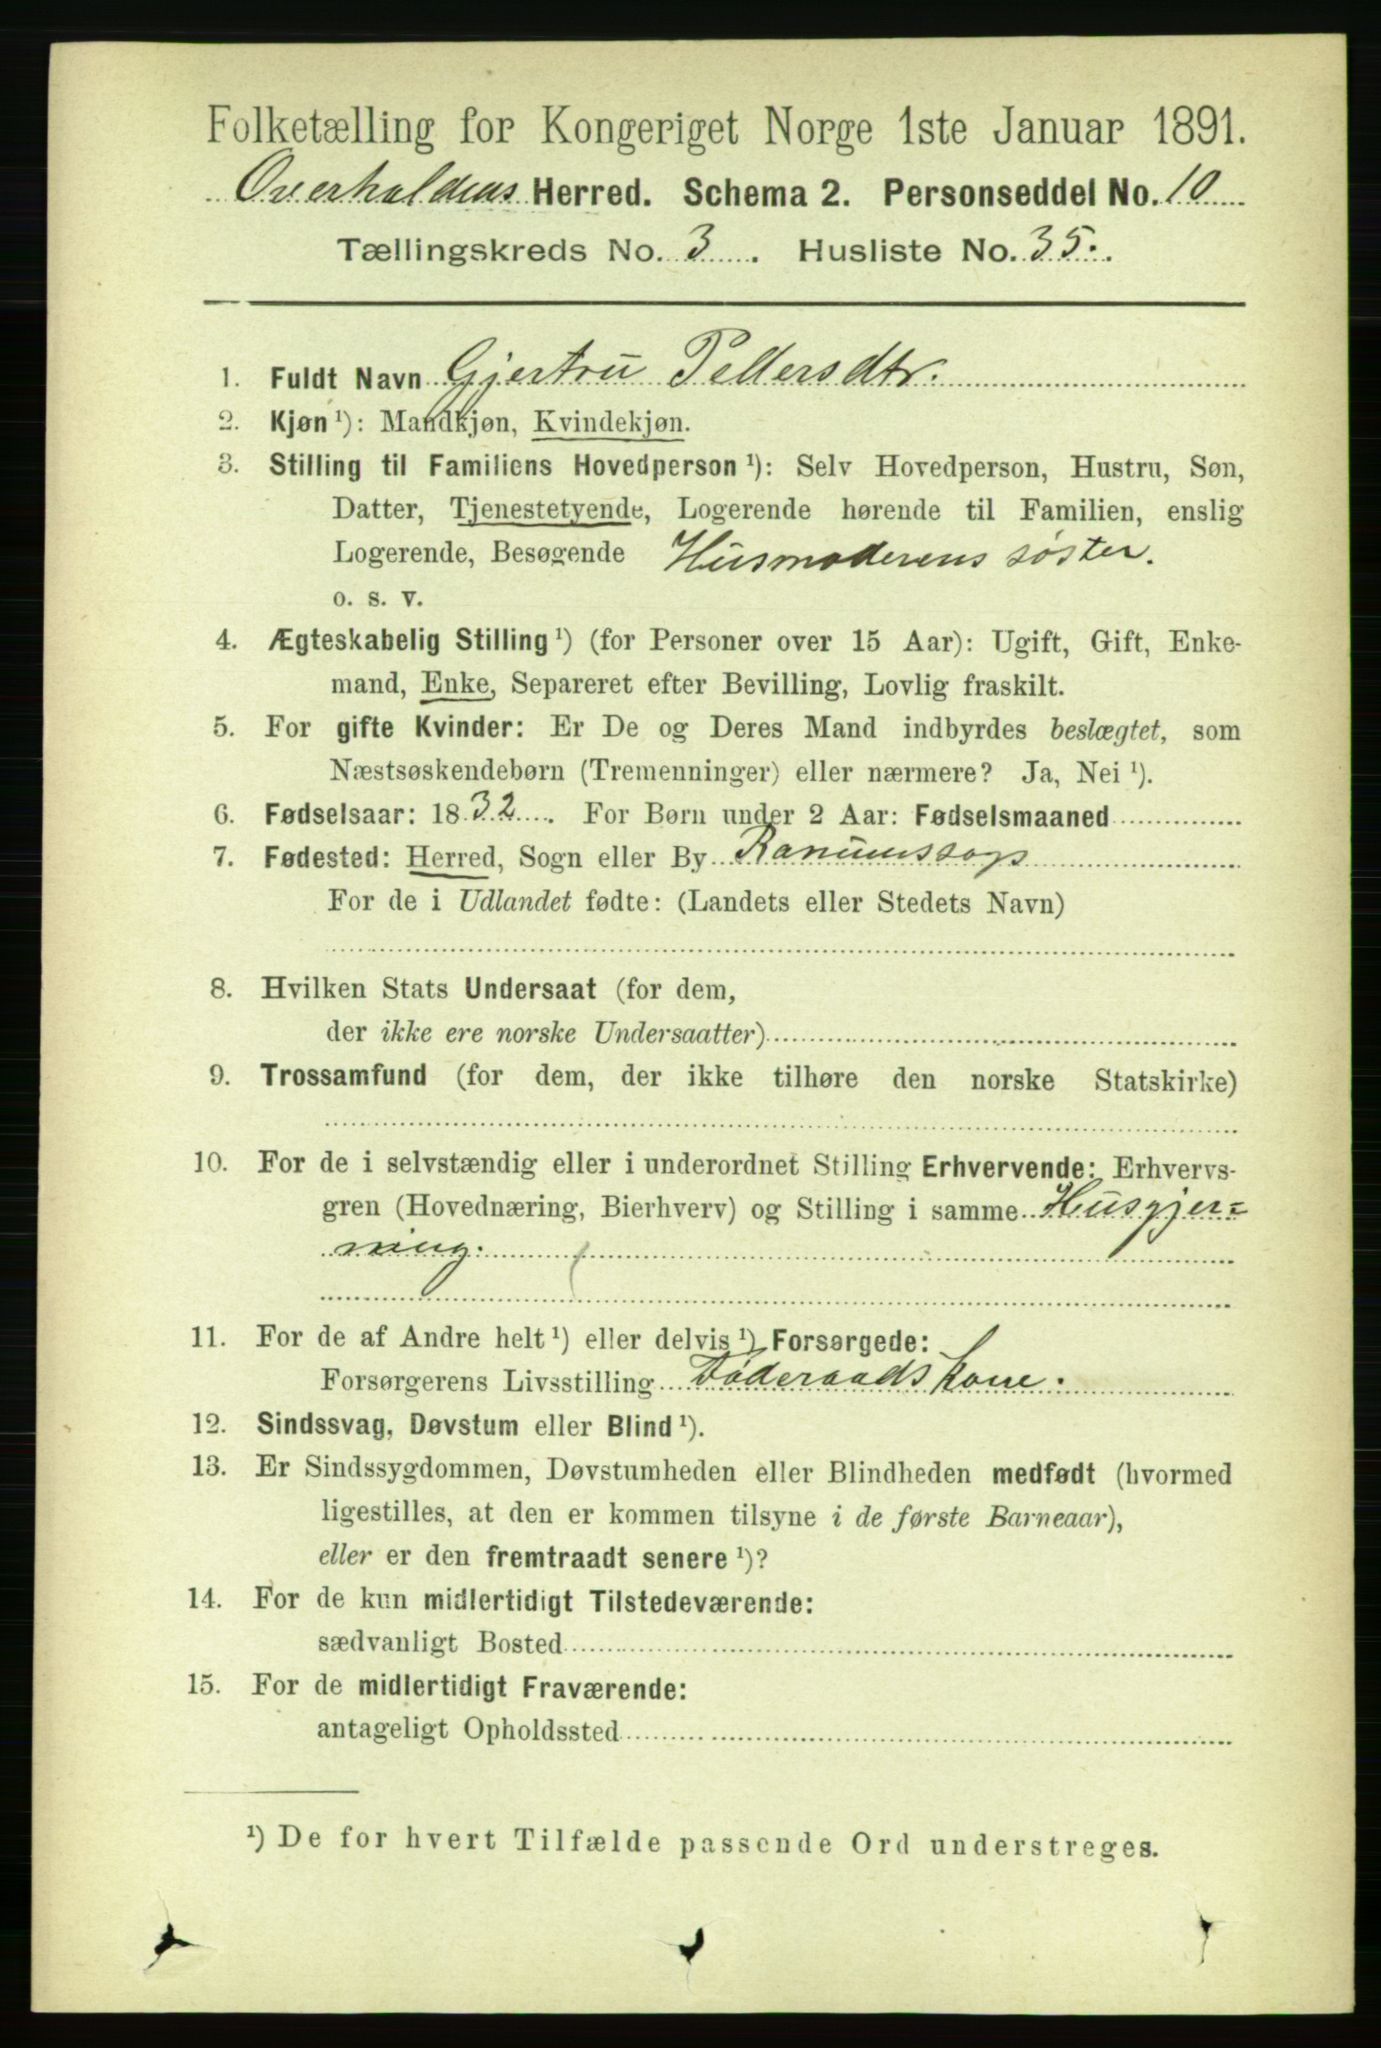 Folketælling for Kongeriget Norge 1ste Januar 1891.
Overhaldens Herred. Schema 2. Personseddel No. 10
Tællingskreds No. 3. Husliste No. 35.
1. Fuldt Navn Gjertru Pettersdtr.
2. Kjøn ¹): Mandkjøn, Kvindekjøn.
3. Stilling til Familiens Hovedperson ¹): Selv Hovedperson, Hustru, Søn,
Datter, Tjenestetyende, Logerende hørende til Familien, enslig
Logerende, Besøgende Husmoderens søster.
o. s. v.
4. Ægteskabelig Stilling ¹) (for Personer over 15 Aar): Ugift, Gift, Enke-
mand, Enke, Separeret efter Bevilling, Lovlig fraskilt.
5. For gifte Kvinder: Er De og Deres Mand indbyrdes beslægtet, som
Næstsøskendebørn (Tremenninger) eller nærmere? Ja, Nei ¹).
6. Fødselsaar: 1832. For Børn under 2 Aar: Fødselsmaaned
7. Fødested: Herred, Sogn eller By Ranumssogn
For de i Udlandet fødte: (Landets eller Stedets Navn)
8. Hvilken Stats Undersaat (for dem,
der ikke ere norske Undersaatter)
9. Trossamfund (for dem, der ikke tilhøre den norske Statskirke)
10. For de i selvstændig eller i underordnet Stilling Erhvervende: Erhvervs-
gren (Hovednæring, Bierhverv) og Stilling i samme Husgjer=
ning.
11. For de af Andre helt ¹) eller delvis ¹) Forsørgede:
Forsørgerens Livsstilling Föderaadskone.
12. Sindssvag, Døvstum eller Blind ¹).
13. Er Sindssygdommen, Døvstumheden eller Blindheden medfødt (hvormed
ligestilles, at den er kommen tilsyne i de første Barneaar),
eller er den fremtraadt senere ¹)?
14. For de kun midlertidigt Tilstedeværende:
sædvanligt Bosted
15. For de midlertidigt Fraværende:
antageligt Opholdssted
¹) De for hvert Tilfælde passende Ord understreges.